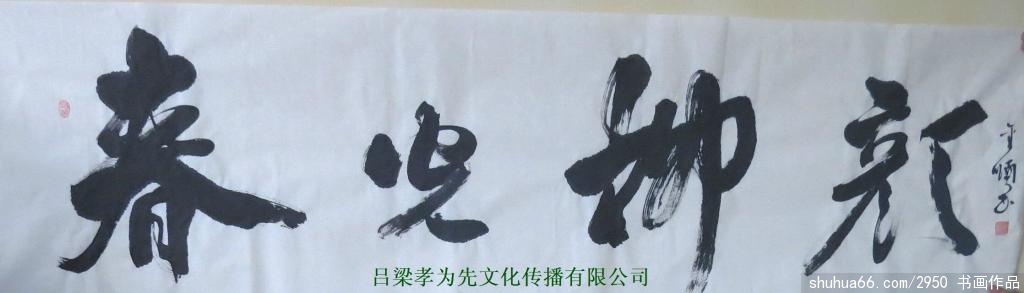 春光柳颜
吕梁孝为先文化传播有限公司
shuhua66.com/2950 书画作品